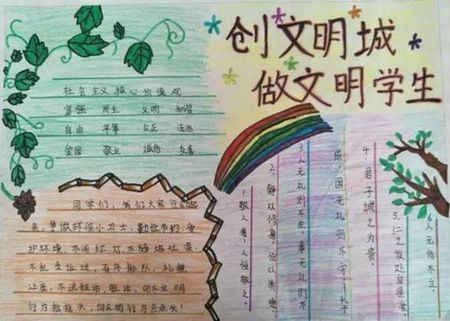 创文明城
做文明学生
社会主义核心价值观
富强 民主 文明 和谐
自由 平等 公正 法治
爱国 敬业 诚信 友善
同学们，我们大家行动起
来，争做环保小卫士，勤俭节约，爱
护环境，不闯红灯，不随地吐痰，
不乱丢垃圾，有序排队，礼貌
让座，不说粗话、脏话，向不文明
行为摇摇头，向文明行为点点头！
1.敬人者，人恒敬之。
2.静以修身，俭以养德。
3.人无礼则不生，事无礼则不
成，国无礼则不宁。
4.君子诚之为贵。
5.仁之发处自是爱。
6.人无信不立。